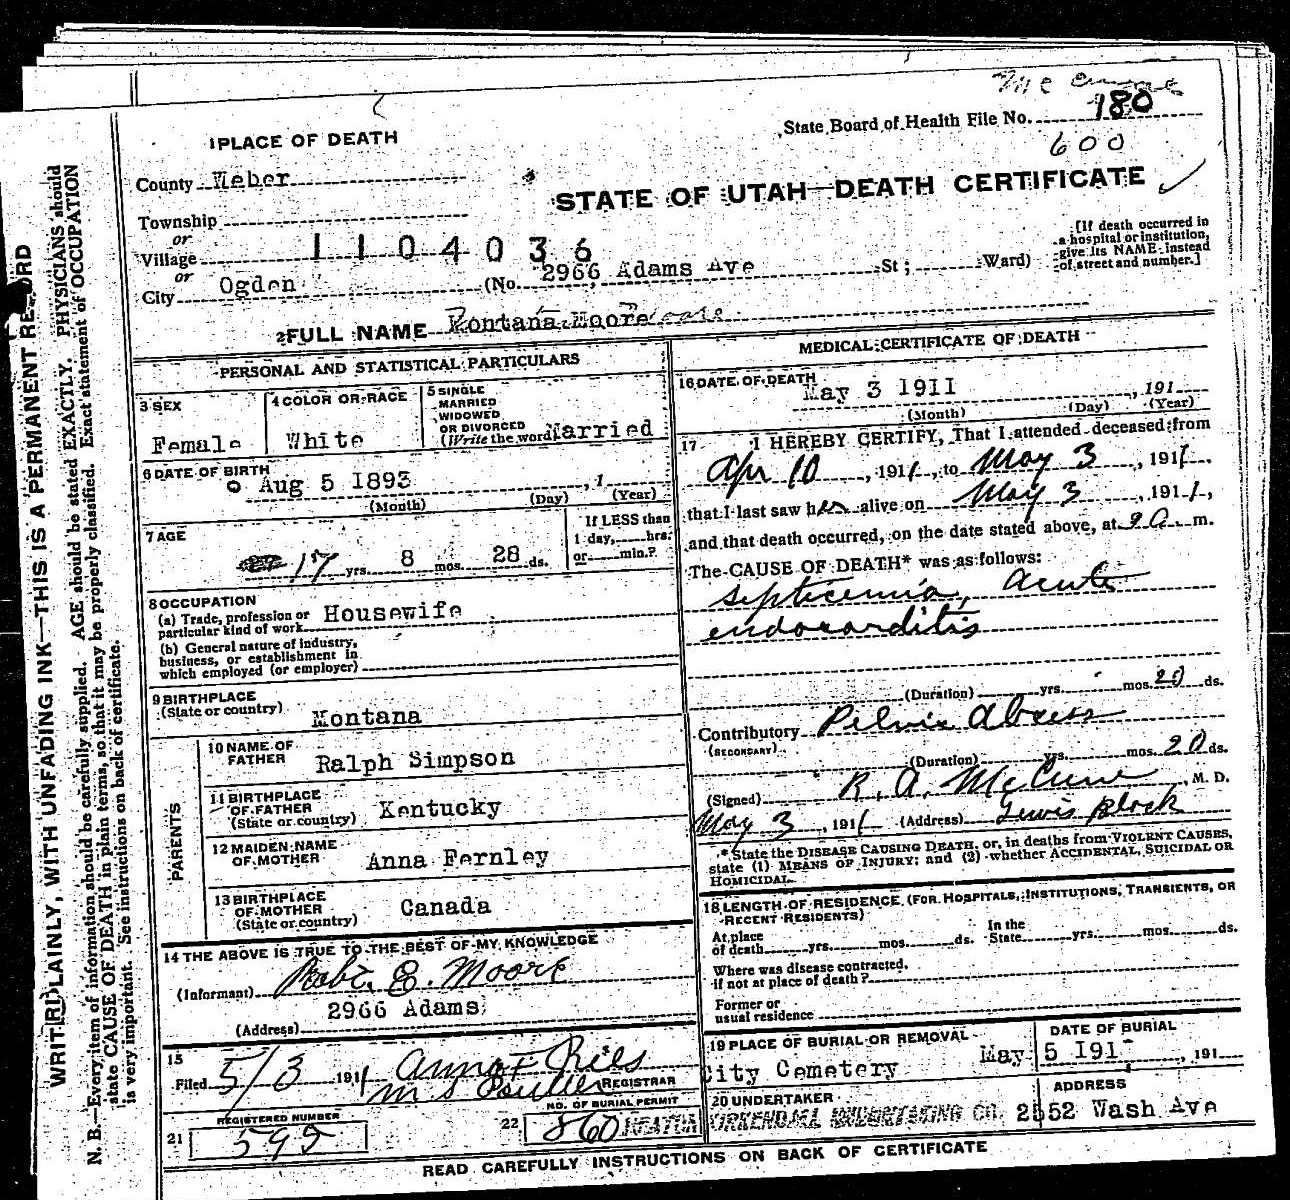 McCune
State Board of Health File No. 180
600
1 PLACE OF DEATH
County Weber
STATE OF UTAH—DEATH CERTIFICATE
Township
or
Village 1104036
or
City Ogden (No. 2966 Adams Ave St; Ward)
[If death occurred in
a hospital or institution,
give its NAME instead
of street and number.]
2 FULL NAME Montana Moore
PERSONAL AND STATISTICAL PARTICULARS
3 SEX
Female
4 COLOR OR RACE
White
5 SINGLE
MARRIED
WIDOWED
OR DIVORCED
(Write the word) Married
6 DATE OF BIRTH
Aug 5 1893, 1
(Month) (Day) (Year)
7 AGE
17 yrs. 8 mos. 28 ds.
If LESS than
1 day, hrs.
or min.?
8 OCCUPATION
(a) Trade, profession or
particular kind of work Housewife
(b) General nature of industry,
business, or establishment in
which employed (or employer)
9 BIRTHPLACE
(State or country) Montana
PARENTS
10 NAME OF
FATHER Ralph Simpson
11 BIRTHPLACE
OF FATHER
(State or country) Kentucky
12 MAIDEN NAME
OF MOTHER Anna Fernley
13 BIRTHPLACE
OF MOTHER
(State or country) Canada
14 THE ABOVE IS TRUE TO THE BEST OF MY KNOWLEDGE
(Informant) Robt. E. Moore
2966 Adams
(Address)
15
Filed 5/3 1911
REGISTRAR
REGISTERED NUMBER
21 595
NO. OF BURIAL PERMIT
22 860
MEDICAL CERTIFICATE OF DEATH
16 DATE OF DEATH
May 3 1911, 191
(Month) (Day) (Year)
17 I HEREBY CERTIFY, That I attended deceased from
Apr 10, 1911, to May 3, 1911,
that I last saw her alive on May 3, 1911,
and that death occurred, on the date stated above, at m.
The CAUSE OF DEATH* was as follows:
septicemia, acute
endocarditis
(Duration) yrs. mos. 20 ds.
Contributory Pelvic Abcess
(SECONDARY)
(Duration) yrs. mos. 20 ds.
(Signed) R. A. McCune, M. D.
May 3, 1911 (Address) Lewis Block
* State the DISEASE CAUSING DEATH, or, in deaths from VIOLENT CAUSES,
state (1) MEANS OF INJURY; and (2) whether ACCIDENTAL, SUICIDAL OR
HOMICIDAL.
18 LENGTH OF RESIDENCE (FOR HOSPITALS, INSTITUTIONS, TRANSIENTS, OR
RECENT RESIDENTS)
At place
of death yrs. mos. ds.
In the
State yrs. mos. ds.
Where was disease contracted,
if not at place of death?
Former or
usual residence
19 PLACE OF BURIAL OR REMOVAL
City Cemetery
DATE OF BURIAL
May 5 191, 191
20 UNDERTAKER
KIRKENDALL UNDERTAKING CO.
ADDRESS
2552 Wash Ave
READ CAREFULLY INSTRUCTIONS ON BACK OF CERTIFICATE
WRITE PLAINLY, WITH UNFADING INK—THIS IS A PERMANENT RECORD
N. B.—Every item of information should be carefully supplied. AGE should be stated EXACTLY. PHYSICIANS should
state CAUSE OF DEATH in plain terms, so that it may be properly classified. Exact statement of OCCUPATION
is very important. See instructions on back of certificate.